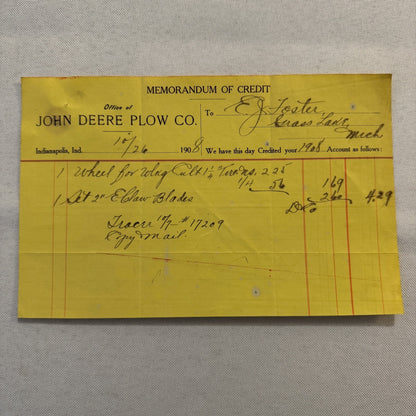 MEMORANDUM OF CREDIT
Office of
JOHN DEERE PLOW CO.
To E. J. Foster
Grass Lake,
Mich
Indianapolis, Ind. 10/26 1908 We have this day Credited your 1908 Account as follows:
1 Wheel for Wlkg Cult 1¼ 2 25
¼ 56 169
1 Set 2" Blades 260 4.29
10/7 - # 17209
Copy Mail